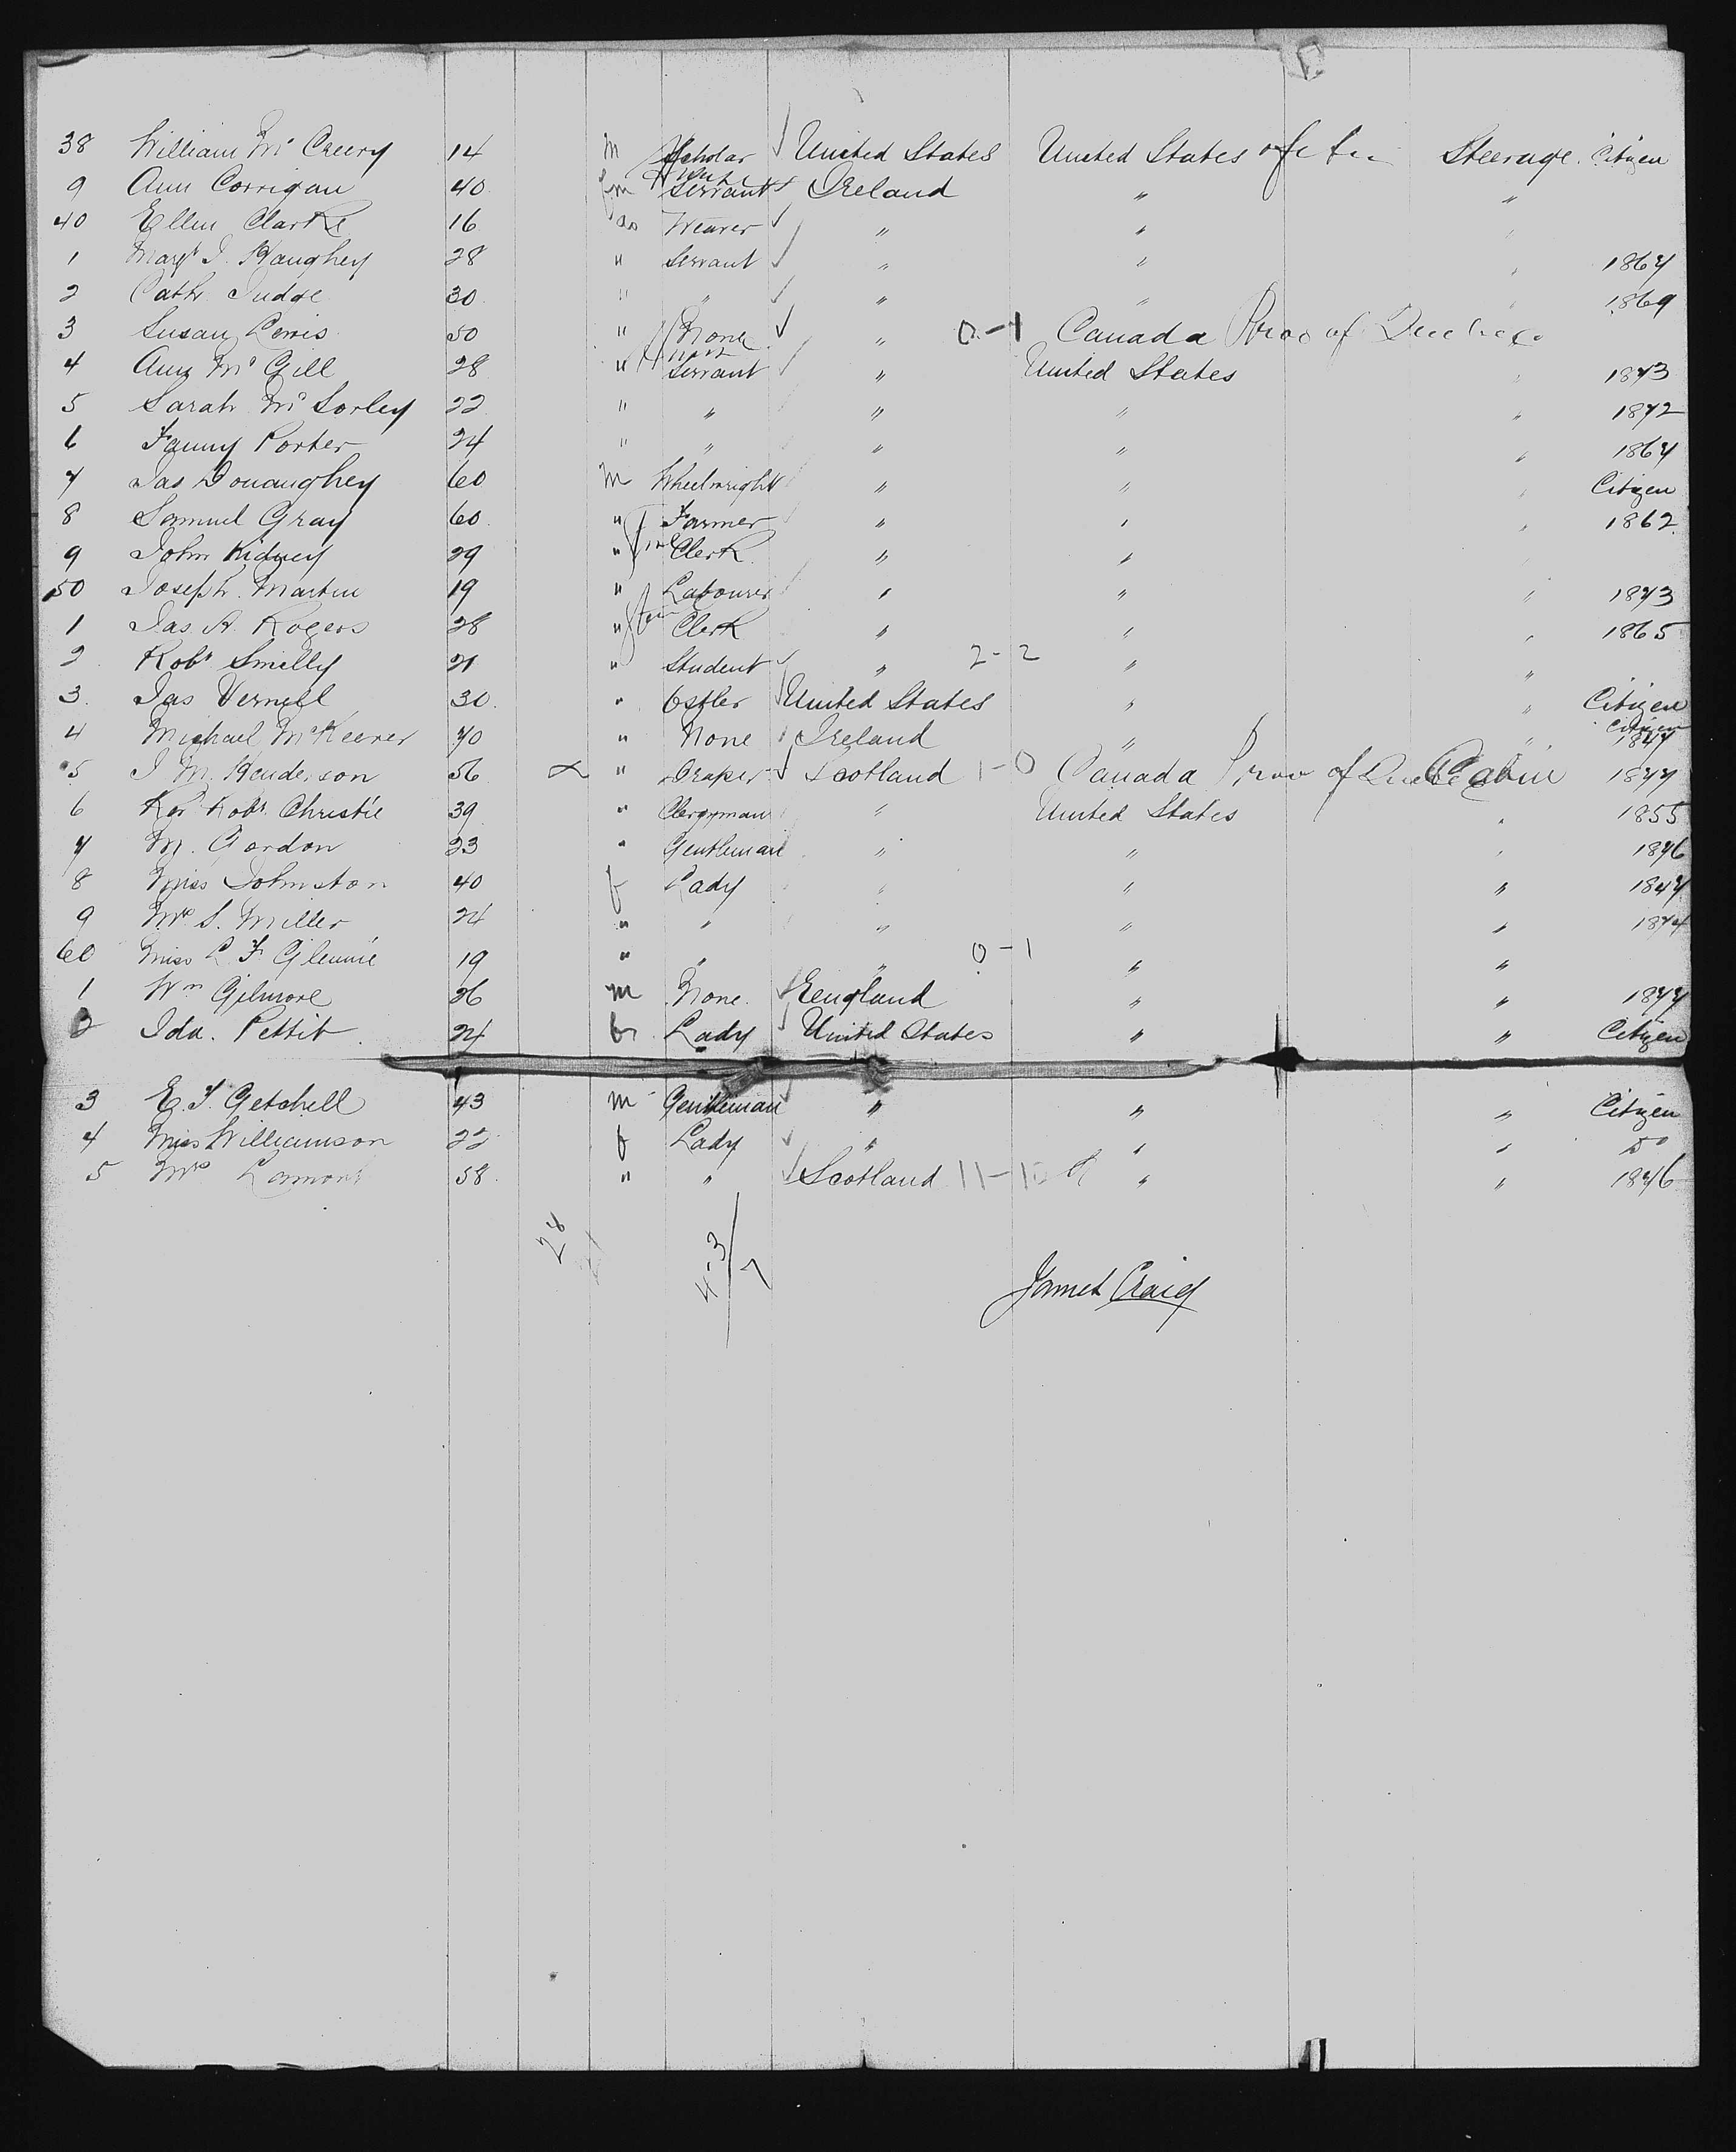 38 William Mc Creery 14 m Scholar United States United States of Steerage. Citizen
9 Ann Corrigan 40 fm Servant Ireland " "
40 Ellen Clarke 16 do Weaver " "
1 Margt J. Haughey 28 " Servant " " " 1867
2 Cath. Judge 30 " " " " " 1869
3 Susan Lewis 50 " None " 0-1 Canada Prov of Quebec
4 Ann Mc Gill 28 " Servant " United States " 1873
5 Sarah Mc Sorley 22 " " " " " 1872
6 Fanny Porter 24 " " " " " 1867
7 Jas Donaughey 60 m Wheelwright " " " Citizen
8 Samuel Gray 60 " Farmer " " " 1862
9 John Kidney 29 " Clerk " "
50 Joseph Martin 19 " Labourer " " " 1873
1 Jas A. Rogers 28 " Clerk " " " 1865
2 Robt Smilly 21 " Student " 2-2 " "
3. Jas Vernell 30. " Ostler United States " " Citizen
4 Michael McKeever 70 " None Ireland " " Citizen 1847
5 J M. Henderson 56 " Draper Scotland 1-0 Canada Prov of Quebec Cabin 1877
6 Robt Christie 39 " Clergyman " United States " 1855
7 M. Gordon 23 " Gentleman " " " 1876
8 Miss Johnston 40 f Lady " " " 1847
9 Mrs S. Miller 24 " " " " " 1874
60 Miss L. F. Glennie 19 " " " 0-1 " "
1 Wm Gilmore 26 m None. England " " 1877
2 Ida. Pettit 24 f Lady United States " " Citizen
3 E. F. Getchell 43 m Gentleman " " " Citizen
4 Miss Williamson 22 f Lady " " " Do
5 Mrs Lamont 58. " " Scotland 11-10 " " 1876
28 4-3/7
James Craig